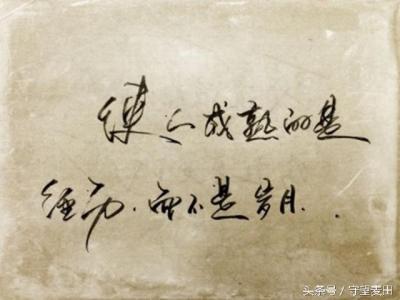 使人成熟的是
经历.而不是岁月..
头条号/守望麦田